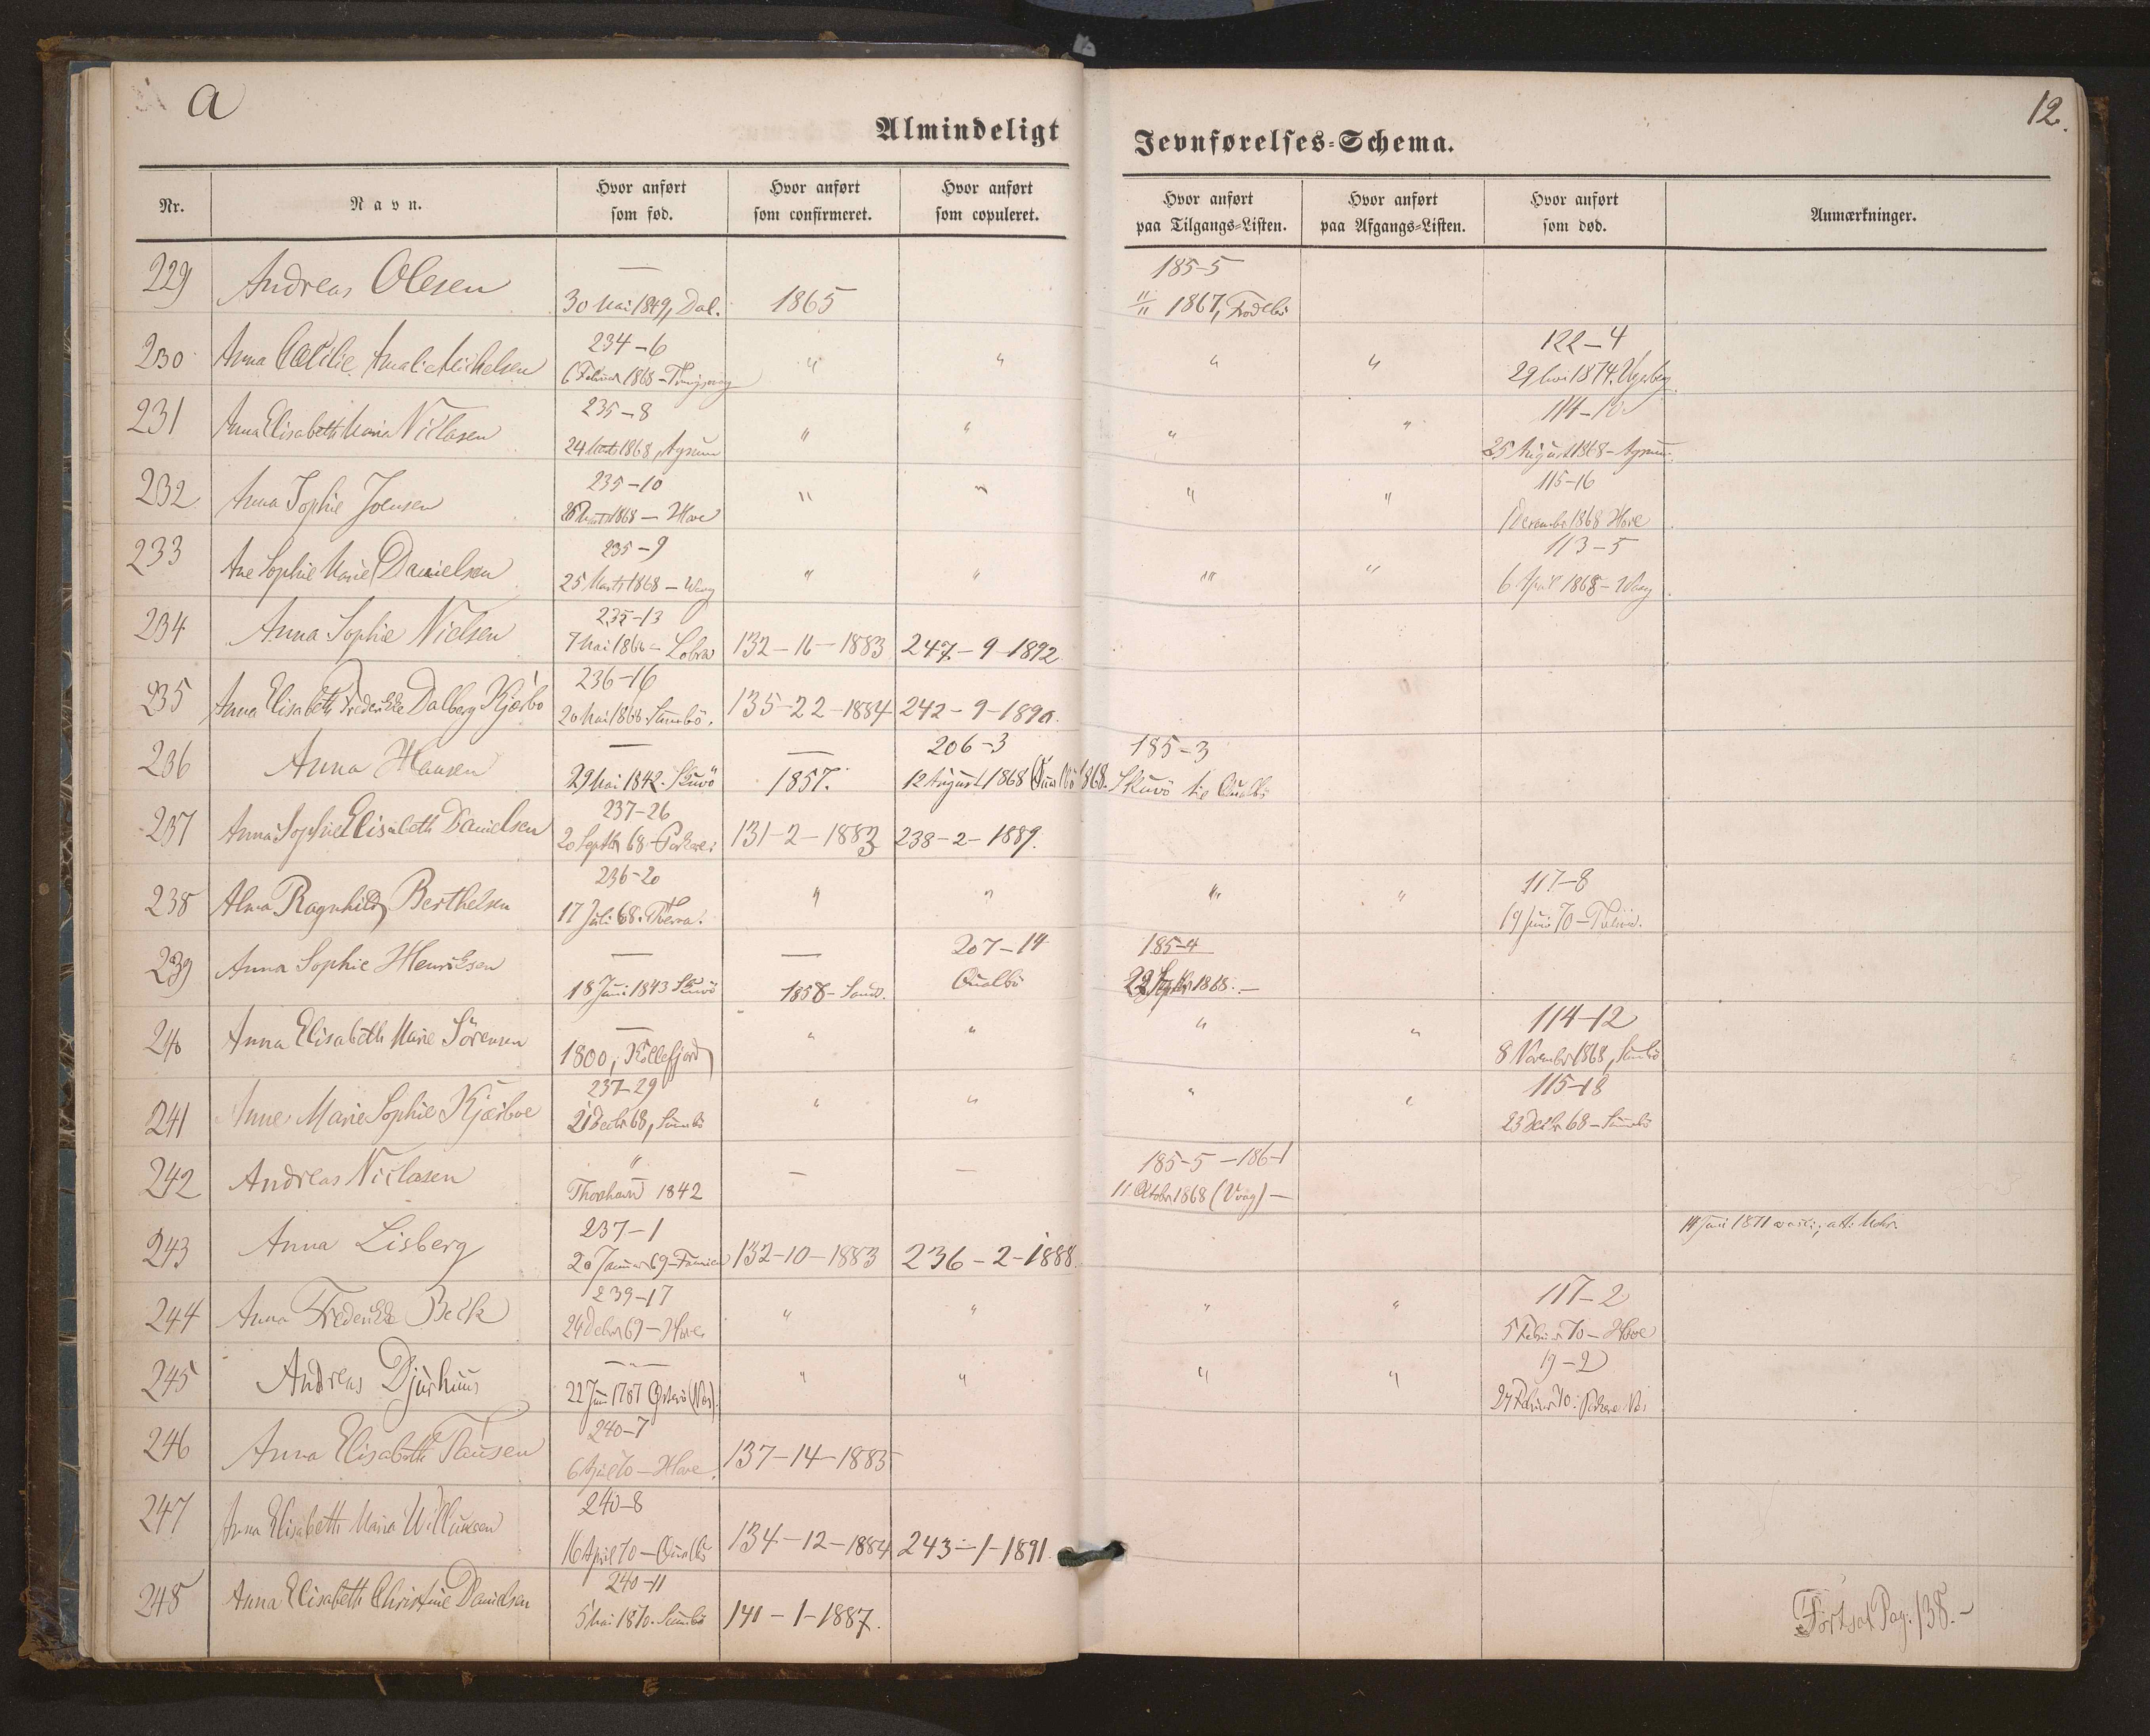 a
12.
Almindeligt Jevnførelses-Schema.
Nr.
Navn.
Hvor anført som fød.
Hvor anført som confirmeret.
Hvor anført som copuleret.
Hvor anført paa Tilgangs-Listen.
Hvor anført paa Afgangs-Listen.
Hvor anført som død.
Anmærkninger.
229 Andreas Olesen — 185-5
30 Mai 1849, Dal. 1865 11/11 1867, Frodebö
230 Anna Cæcilie Amalie Michelsen 234-6 " " " " 122-4
6 Februar 1868 - 29 1874.
231 Anna Elisabeth Maria Niclasen 235-8 " " " " 114-10
24 Marts 1868, 25 August 1868 -
232 Anna Sophie Joensen 235-10 " " " " 115-16
Marts 1868 - Hove 1 December 1868 Hove
233 Ane Sophie Marie Danielsen 235-9 " " " " 113-5
25 Marts 1868 - Waag 6 April 1868 - Waag
234 Anna Sophie Nielsen 235-13
7 Mai 1868 - Lobra 132-16-1883 247-9-1892
235 Anna Elisabeth Frederikke Dalberg Kjærbo 236-16
20 Mai 1868 Sumbö. 135-22-1884 242-9-1890.
236 Anna Hansen — — 206-3 185-3
29 Mai 1842 - Skuö 1857. 12 August 1868 Qualbö 1868. Skuö til Qualbö
237 Anna Sophie Elisabeth Danielsen 237-26
20 Septbr 68 - Porkere. 131-2-1883 238-2-1889.
238 Alma Ragnhild Berthelsen 236-20 " " " " 117-8
17 Juli 68 - Tveraa. 19 Juni 70 -
239 Anna Sophie Henriksen — — 207-14 185-4
18 Juni 1843 Skuö 1858 - Sand. Qualbö 22 Septbr 1868. —
240 Anna Elisabeth Marie Sörensen — " " " " 114-12
1800, Kollefjord 8 November 1868, Sumbö
241 Anne Marie Sophie Kjærboe 237-29 " " " " 115-18
21 Decbr 68, Sumbö 23 Decbr 68 - Sumbö
242 Andreas Niclasen " — — 185-5-186-1
Thorshavn 1842 11. Octobr 1868 (Vaag) —
14 Juni 1871
243 Anna Lisberg 237-1
20 Januar 69 - Famien 132-10-1883 236-2-1888.
244 Anna Frederikke Beck 239-17 " " " " 117-2
24 Decbr 69 - Hove. 5 Februar 70 - Hove
245 Andreas Djurhuus — " " " " 19-2
22 Juni 1787 Österö (Næs). 27 Februar 70: Porkere Næs
246 Anna Elisabeth Tausen 240-7
6 April 70 - Hove. 137-14-1885
247 Anna Elisabeth Maria Willumsen 240-8
16 April 70 - Qualbö 134-12-1884 243-1-1891.
248 Anna Elisabeth Christine Danielsen 240-11
5 Mai 1870 - Sumbö 141-1-1887.
Fortsat Pag. 138. -